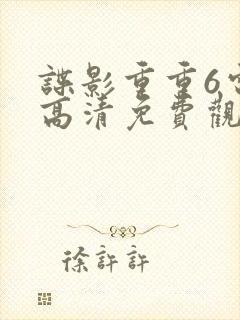 諜影重重6
高清免費觀
徐許許